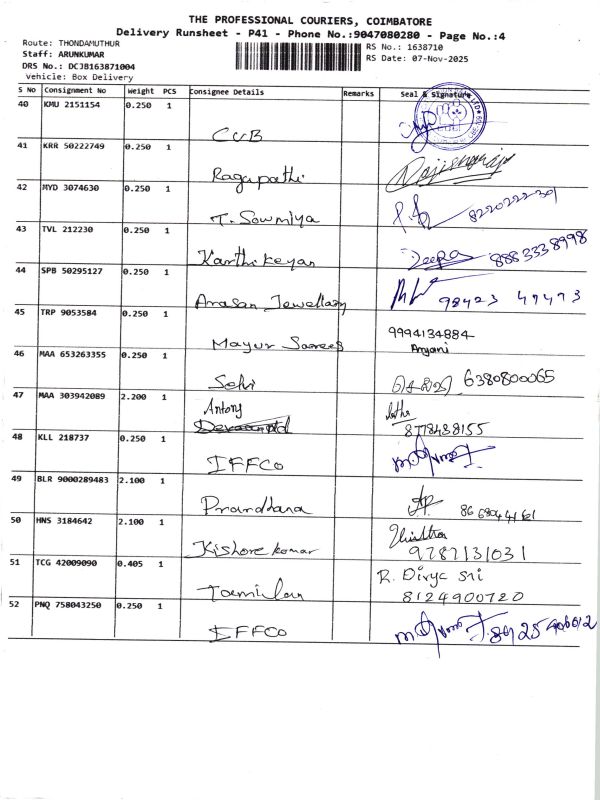 THE PROFESSIONAL COURIERS, COIMBATORE
Delivery Runsheet - P41 - Phone No.:9047080280 - Page No.:4
Route: THONDAMUTHUR
Staff: ARUNKUMAR
DRS No.: DCJB163871004
vehicle: Box Delivery
RS No.: 1638710
RS Date: 07-Nov-2025
S No Consignment No Weight PCS Consignee Details Remarks Seal & Signature
40 KMU 2151154 0.250 1
CUB
41 KRR 50222749 0.250 1
Ragupathi
42 MYD 3074630 0.250 1
T. Sowmiya 8220222301
43 TVL 212230 0.250 1
Karthikeyan Deepa 8883338998
44 SPB 50295127 0.250 1
Arasan Jewellary 98423 49493
45 TRP 9053584 0.250 1
Mayur Sarees 9994134884
46 MAA 653263355 0.250 1
Selvi செல்வி 6380800065
47 MAA 303942089 2.200 1
Antony
8778438155
48 KLL 218737 0.250 1
IFFCO
49 BLR 9000289483 2.100 1
Prardhana
50 HNS 3184642 2.100 1
Kishore kumar 9787131031
51 TCG 42009090 0.405 1
Tamilan R. Divya Sri
8124900720
52 PNQ 758043250 0.250 1
IFFCO